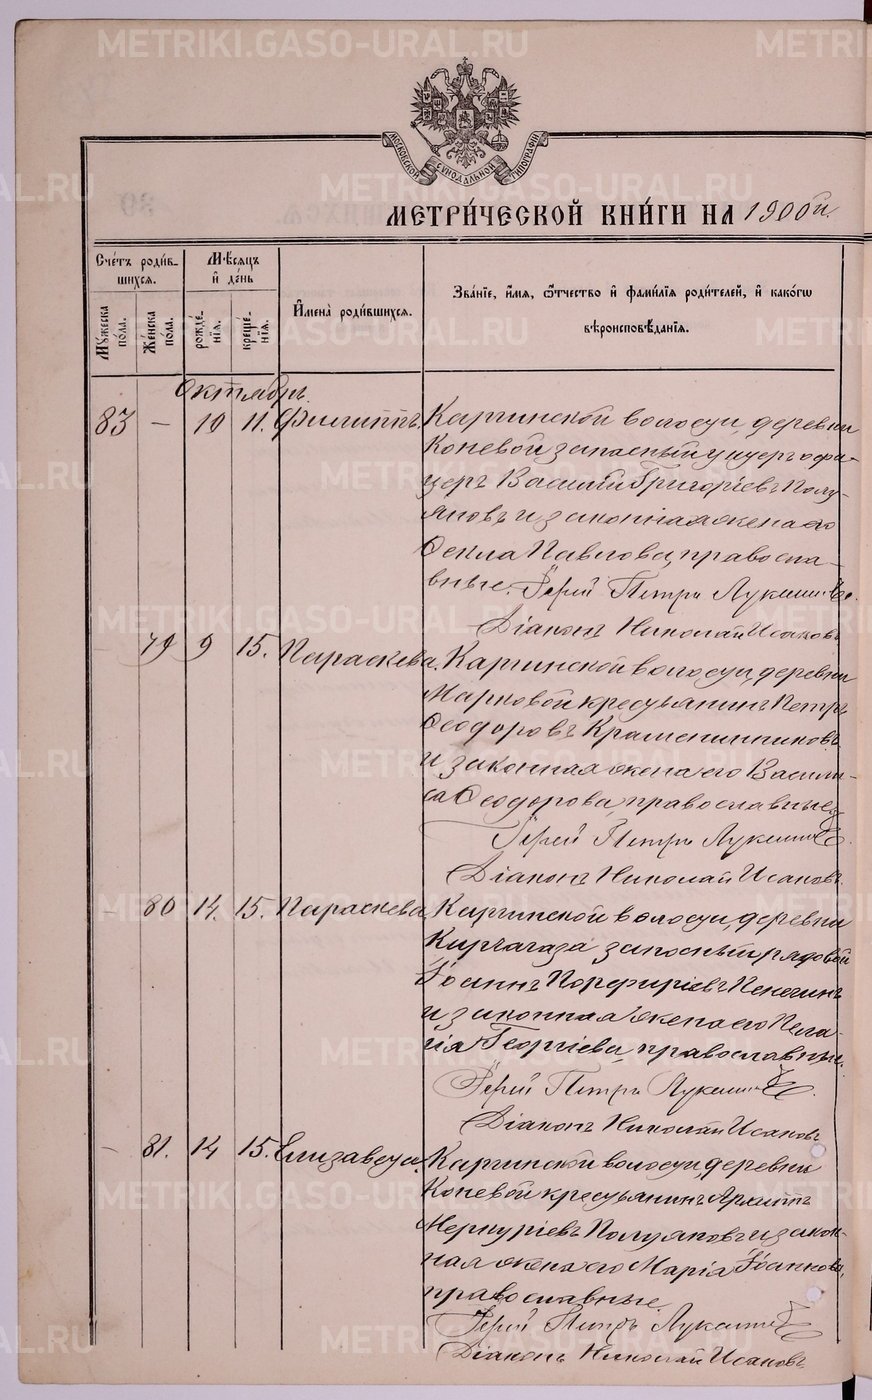 METRIKI.GASO-URAL.RU
МОСКОВСКОЙ СѴНОДАЛЬНОЙ ТИПОГРАФІИ
МЕТРИЧЕСКОЙ КНИГИ НА 1900й.
Счетъ родив-
шихся.
Мѣсяцъ
и день
Мужеска
пола.
Женска
пола.
рожде-
нія.
креще-
нія.
Имена родившихся.
Званіе, имя, ѿтчество и фамилія родителей, и какогѡ
вѣроисповѣданія.
Октябрь.
83 — 10 11. Филиппъ. Каргинской волости, деревни
Коневой запасный унтеръ офи-
церъ Василій Григоріевъ Полу-
яновъ и законная жена его
Ѳекла Павлова, православ-
ные. Іерей Петръ
Діаконъ Николай Исаковъ
- 79 9 15. Параскева. Каргинской волости, деревни
Марковой крестьянинъ Петръ
Ѳеодоровъ Крашенинниковъ
и законная жена его Васили-
са Ѳеодорова, православные
Іерей Петръ
Діаконъ Николай Исаковъ.
- 80 14. 15. Параскева Каргинской волости, деревни
запасный рядовой
Іоаннъ Порфиріевъ
и законная жена его Пела-
гія Георгіева, православные.
Іерей Петръ
Діаконъ Николай Исаковъ
- 81. 14 15. Елизавета. Каргинской волости, деревни
Коневой крестьянинъ Архиппъ
Меркуріевъ Полуяновъ и закон-
ная жена его Марія Іоаннова,
православные.
Іерей Петръ
Діаконъ Николай Исаковъ